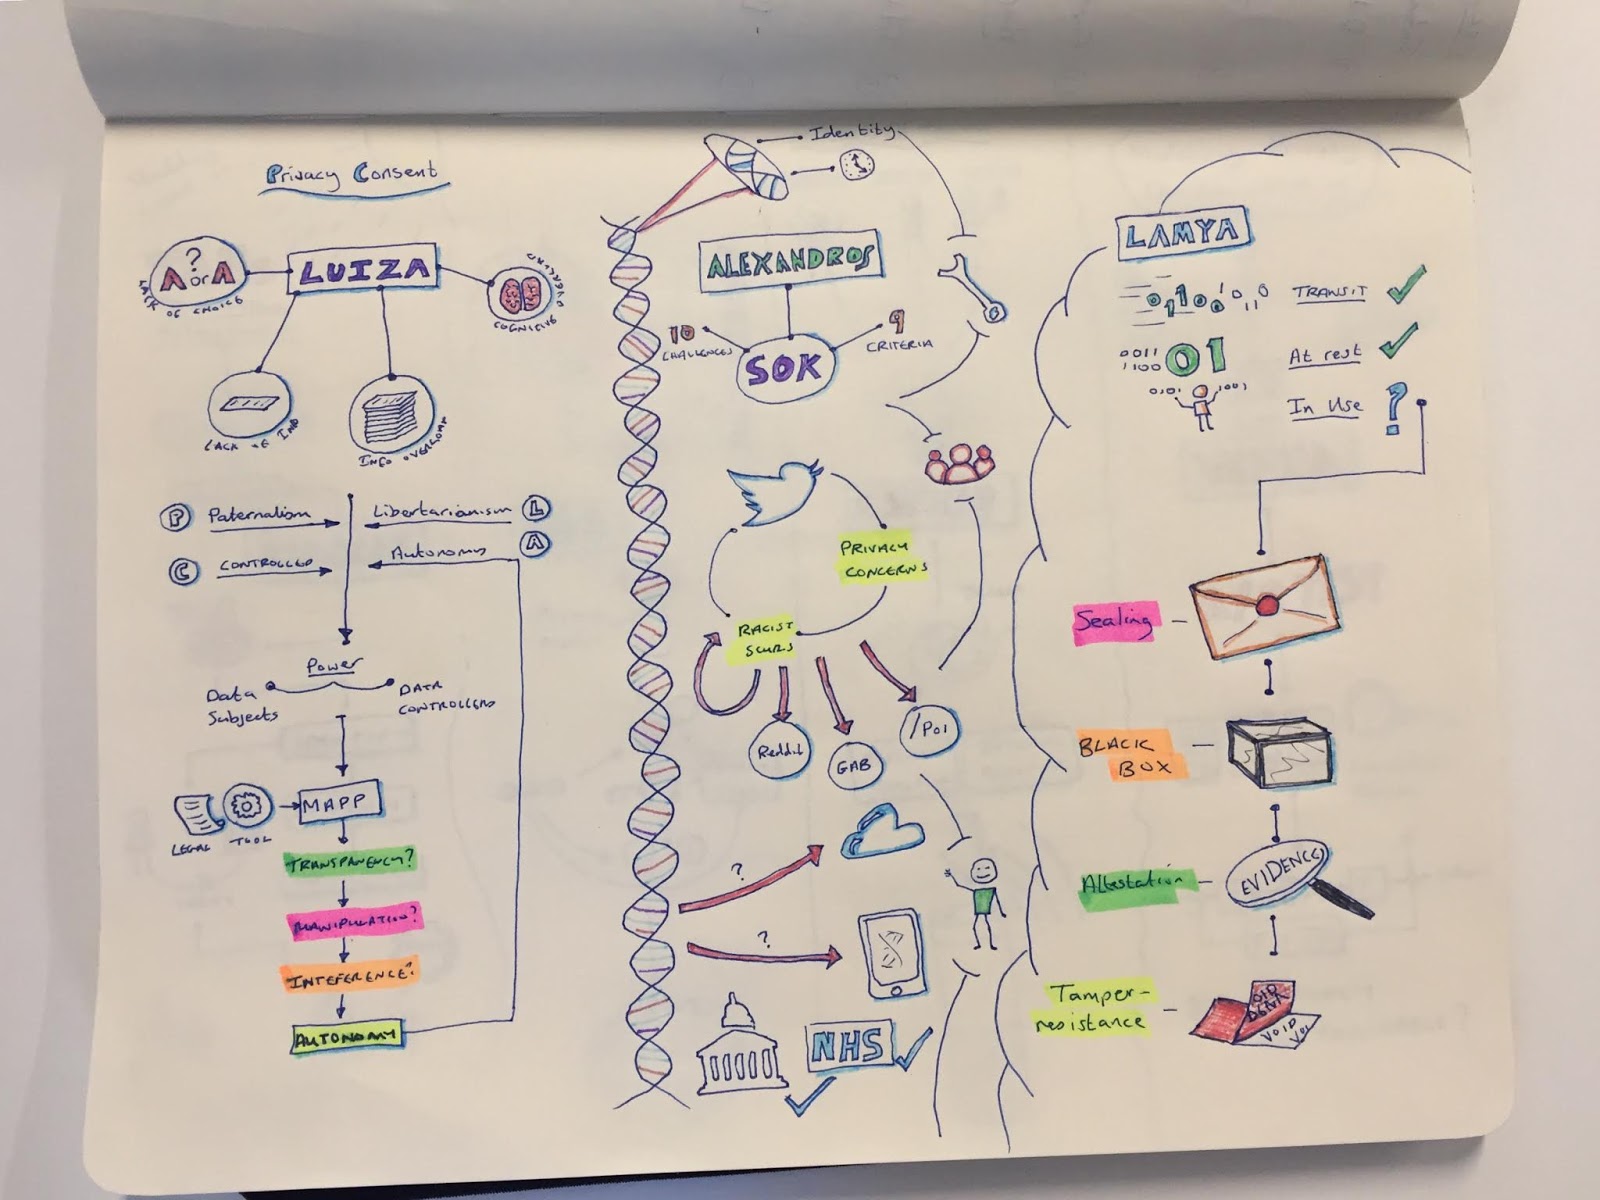 Privacy Consent
?
A or A
LACK OF CHOICE
LUIZA
COGNITIVE
OVERLOAD
LACK OF INFO
INFO OVERLOAD
P Paternalism
Libertarianism L
C CONTROLLED
Autonomy A
Power
Data Subjects
DATA
CONTROLLERS
LEGAL
TOOL
MAPP
TRANSPARENCY?
MANIPULATION?
INTEFERENCE?
AUTONOMY
Identity
ALEXANDROS
10
CHALLENGES
9
CRITERIA
SOK
PRIVACY
CONCERNS
RACIST
SLURS
Reddit
GAB
/Pol
?
?
NHS
LAMYA
TRANSIT
0011
1100
01
At rest
0101
1001
In Use ?
Sealing
BLACK
BOX
Attestation
EVIDENCE
Tamper-
resistance
VOID